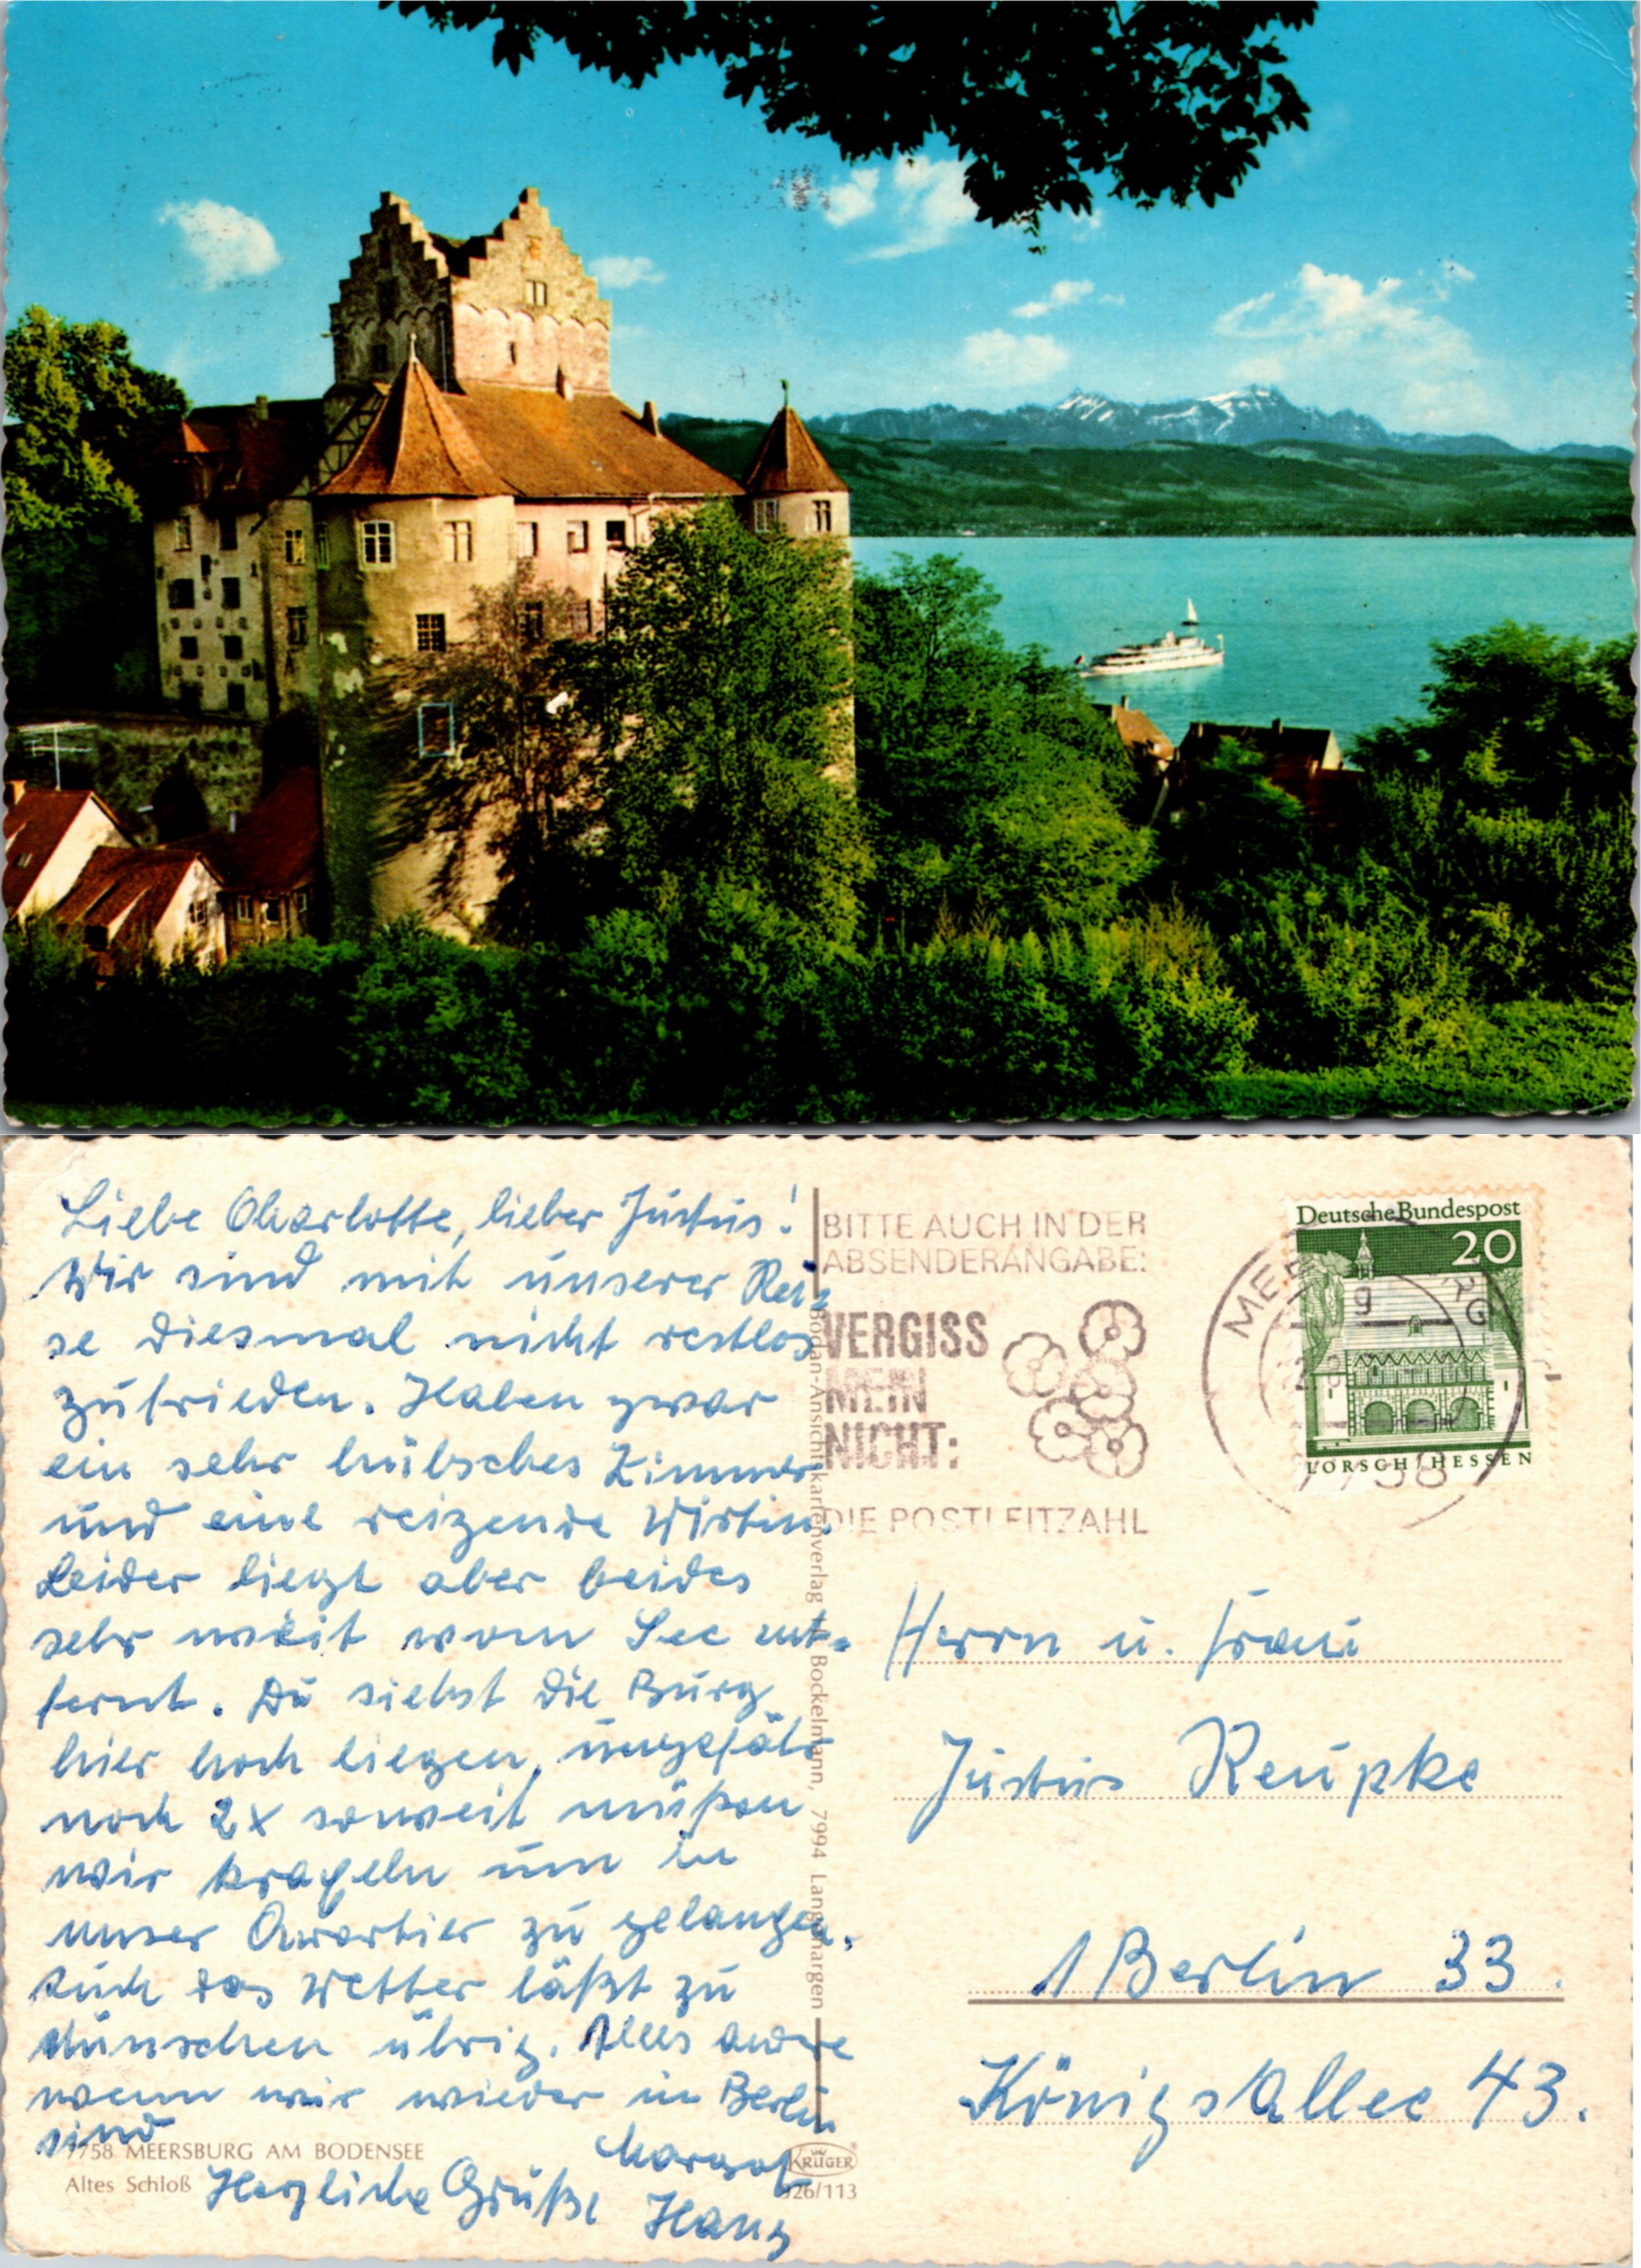 Liebe Charlotte, lieber Justus!
Wir sind mit unserer Rei-
se diesmal nicht restlos
zufrieden. Haben zwar
ein sehr hübsches Zimmer
und eine reizende Wirtin.
Leider liegt aber beides
sehr weit vom See ent-
fernt. Du siehst die Burg
hier hoch liegen, ungefähr
noch 2x soweit müßen
wir kraxeln um in
unser Quartier zu gelangen.
Auch das Wetter läßt zu
wünschen übrig. Alles andre
wenn wir wieder in Berlin
sind
Margot
Herzliche Grüße Hans
7758 MEERSBURG AM BODENSEE
Altes Schloß
KRÜGER
926/113
Bodan-Ansichtskartenverlag Bockelmann, 7994 Langenargen
BITTE AUCH IN DER
ABSENDERANGABE:
VERGISS
MEIN
NICHT:
DIE POSTLEITZAHL
MEERSBURG
g
7758
Deutsche Bundespost
20
LORSCH/HESSEN
Herrn u. Frau
Justus Reupke
1 Berlin 33.
Königsallee 43.